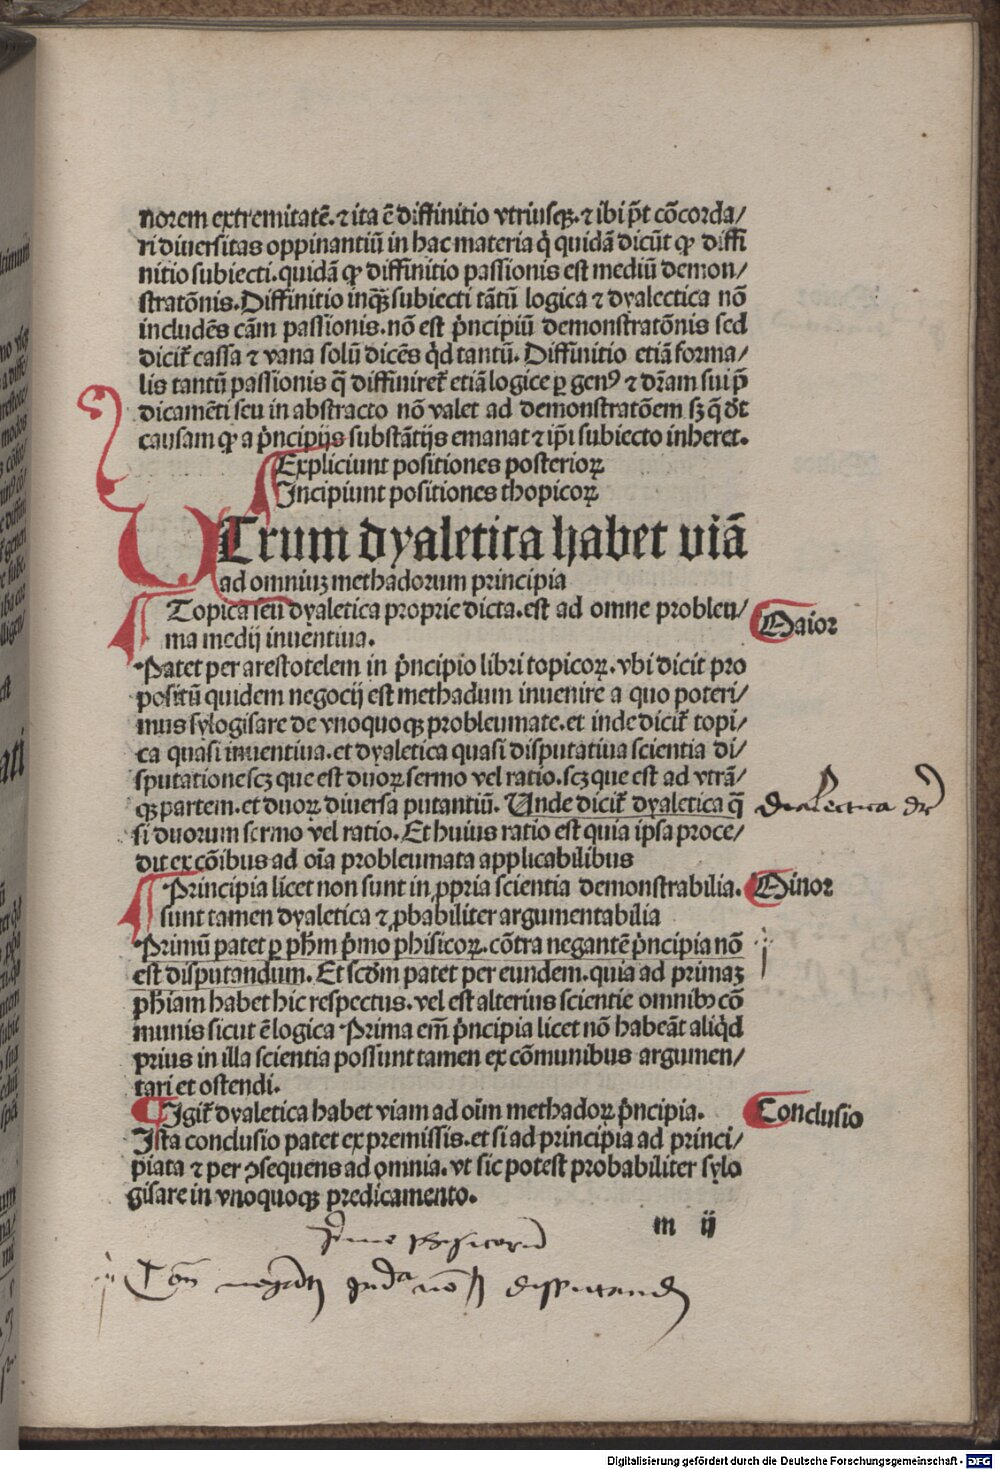 norem extremitatē. ⁊ ita ē diffinitio vtriusqꝫ. ⁊ ibi p̄t cōcorda/
ri diuersitas oppinantiū in hac materia q̇ quidā dicūt ꝙ diffi
nitio subiecti. quidā ꝙ diffinitio passionis est mediū demon/
stratōnis. Diffinitio inqꝫ subiecti tātū logica ⁊ dyalectica nō
includēs cām passionis. nō est p̄ncipiū demonstratōnis sed
dicit᷑ cassa ⁊ vana solū dicēs q̇d tantū. Diffinitio etiā forma/
lis tantū passionis q̄ diffiniret᷑ etiā logice ꝑ genꝰ ⁊ dr̄am sui p̄
dicamēti seu in abstracto nō valet ad demonstratōem sꝫ q̄ dīt
causam ꝙ a p̄ncipijs substātijs emanat ⁊ ip̄i subiecto inheret.
Expliciunt positiones posterioꝝ
Incipiunt positiones thopicoꝝ
UTrum dyaletica habet viā
ad omniuꝫ methadorum principia
Topica seu dyaletica proprie dicta. est ad omne probleu/
ma medij inuentiua.
Maior
Patet per arestotelem in p̄ncipio libri topicoꝝ. vbi dicit pro
positū quidem negocij est methadum inuenire a quo poteri/
mus sylogisare de vnoquoqꝫ probleumate. et inde dicit᷑ topi/
ca quasi inuentiua. et dyaletica quasi disputatiua scientia di/
sputatione scꝫ que est duoꝝ sermo vel ratio. scꝫ que est ad vtrā/
qꝫ partem. et duoꝝ diuersa putantiū. Unde dicit᷑ dyaletica q̄
dialectica dr̄
si duorum sermo vel ratio. Et huius ratio est quia ipsa proce/
dit ex cōibus ad oīa probleumata applicabilibus
Principia licet non sunt in ꝓpria scientia demonstrabilia.
Minor
sunt tamen dyaletica ⁊ ꝓbabiliter argumentabilia
Primū patet ꝑ ph̄m p̄mo phisicoꝝ. cōtra negantē p̄ncipia nō
est disputandum. Et scd̄m patet per eundem. quia ad primaꝫ
ph̄iam habet hic respectus. vel est alterius scientie omnibꝰ cō
munis sicut ē logica Prima em̄ p̄ncipia licet nō habeāt aliq̇d
prius in illa scientia possunt tamen ex cōmunibus argumen/
tari et ostendi.
Igit᷑ dyaletica habet viam ad oīm methadoꝝ p̄ncipia.
Conclusio
Ista conclusio patet ex premissis. et si ad principia ad princi/
piata ⁊ per ꝯsequens ad omnia. vt sic potest probabiliter sylo
gisare in vnoquoqꝫ predicamento.
m ij
primo phisicorū
Con̄ negāt nō disputand
Digitalisierung gefördert durch die Deutsche Forschungsgemeinschaft - DFG